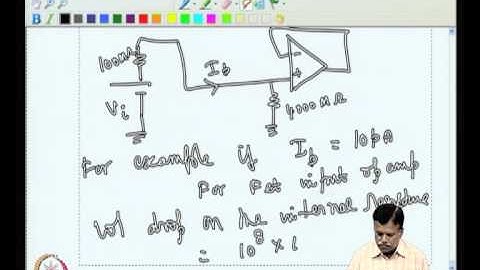 100MΩ
I_b
Vi
4000MΩ
For example if I_b = 10pA
For Fet input of amp
Vol drop on the internal
= 10^8 ×